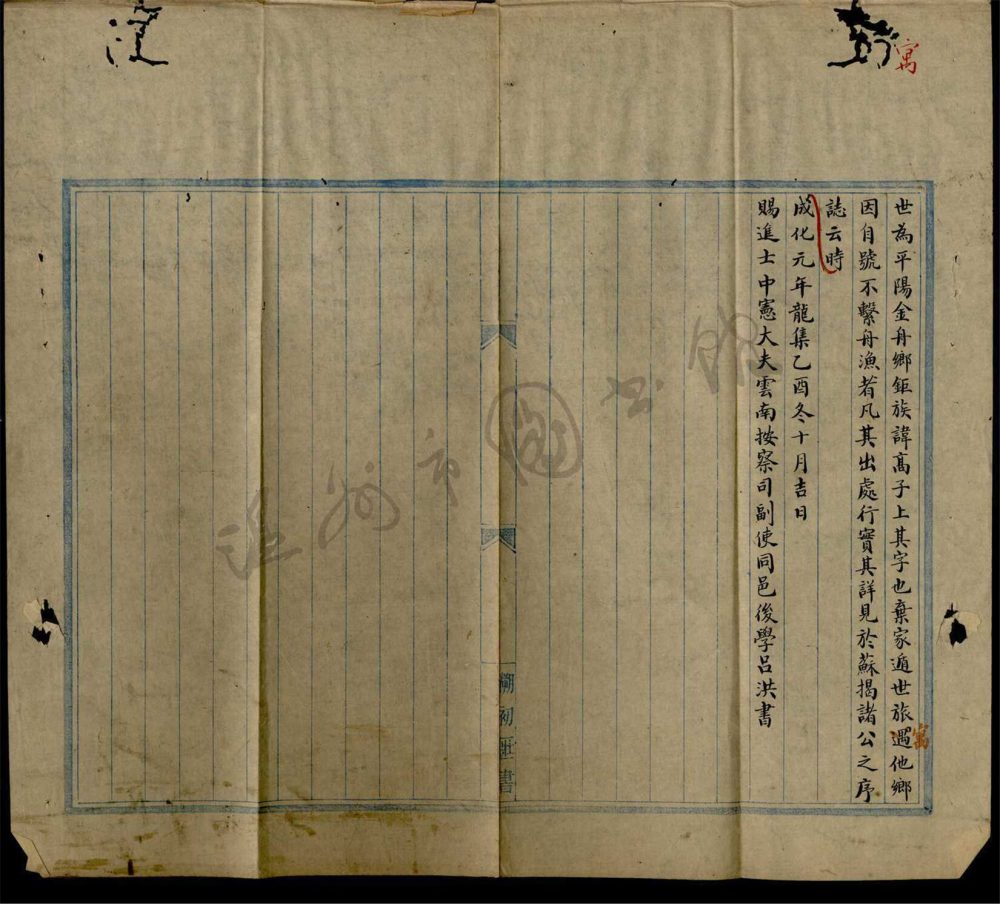 寓
世為平陽金舟鄉鉅族諱高子上其字也棄家遁世旅遇他鄉
寓
因自號不繫舟漁者凡其出處行實其詳見於蘇揭諸公之序
誌云時
成化元年龍集乙酉冬十月吉日
賜進士中憲大夫雲南按察司副使同邑後學呂洪書
初匧書
市圖